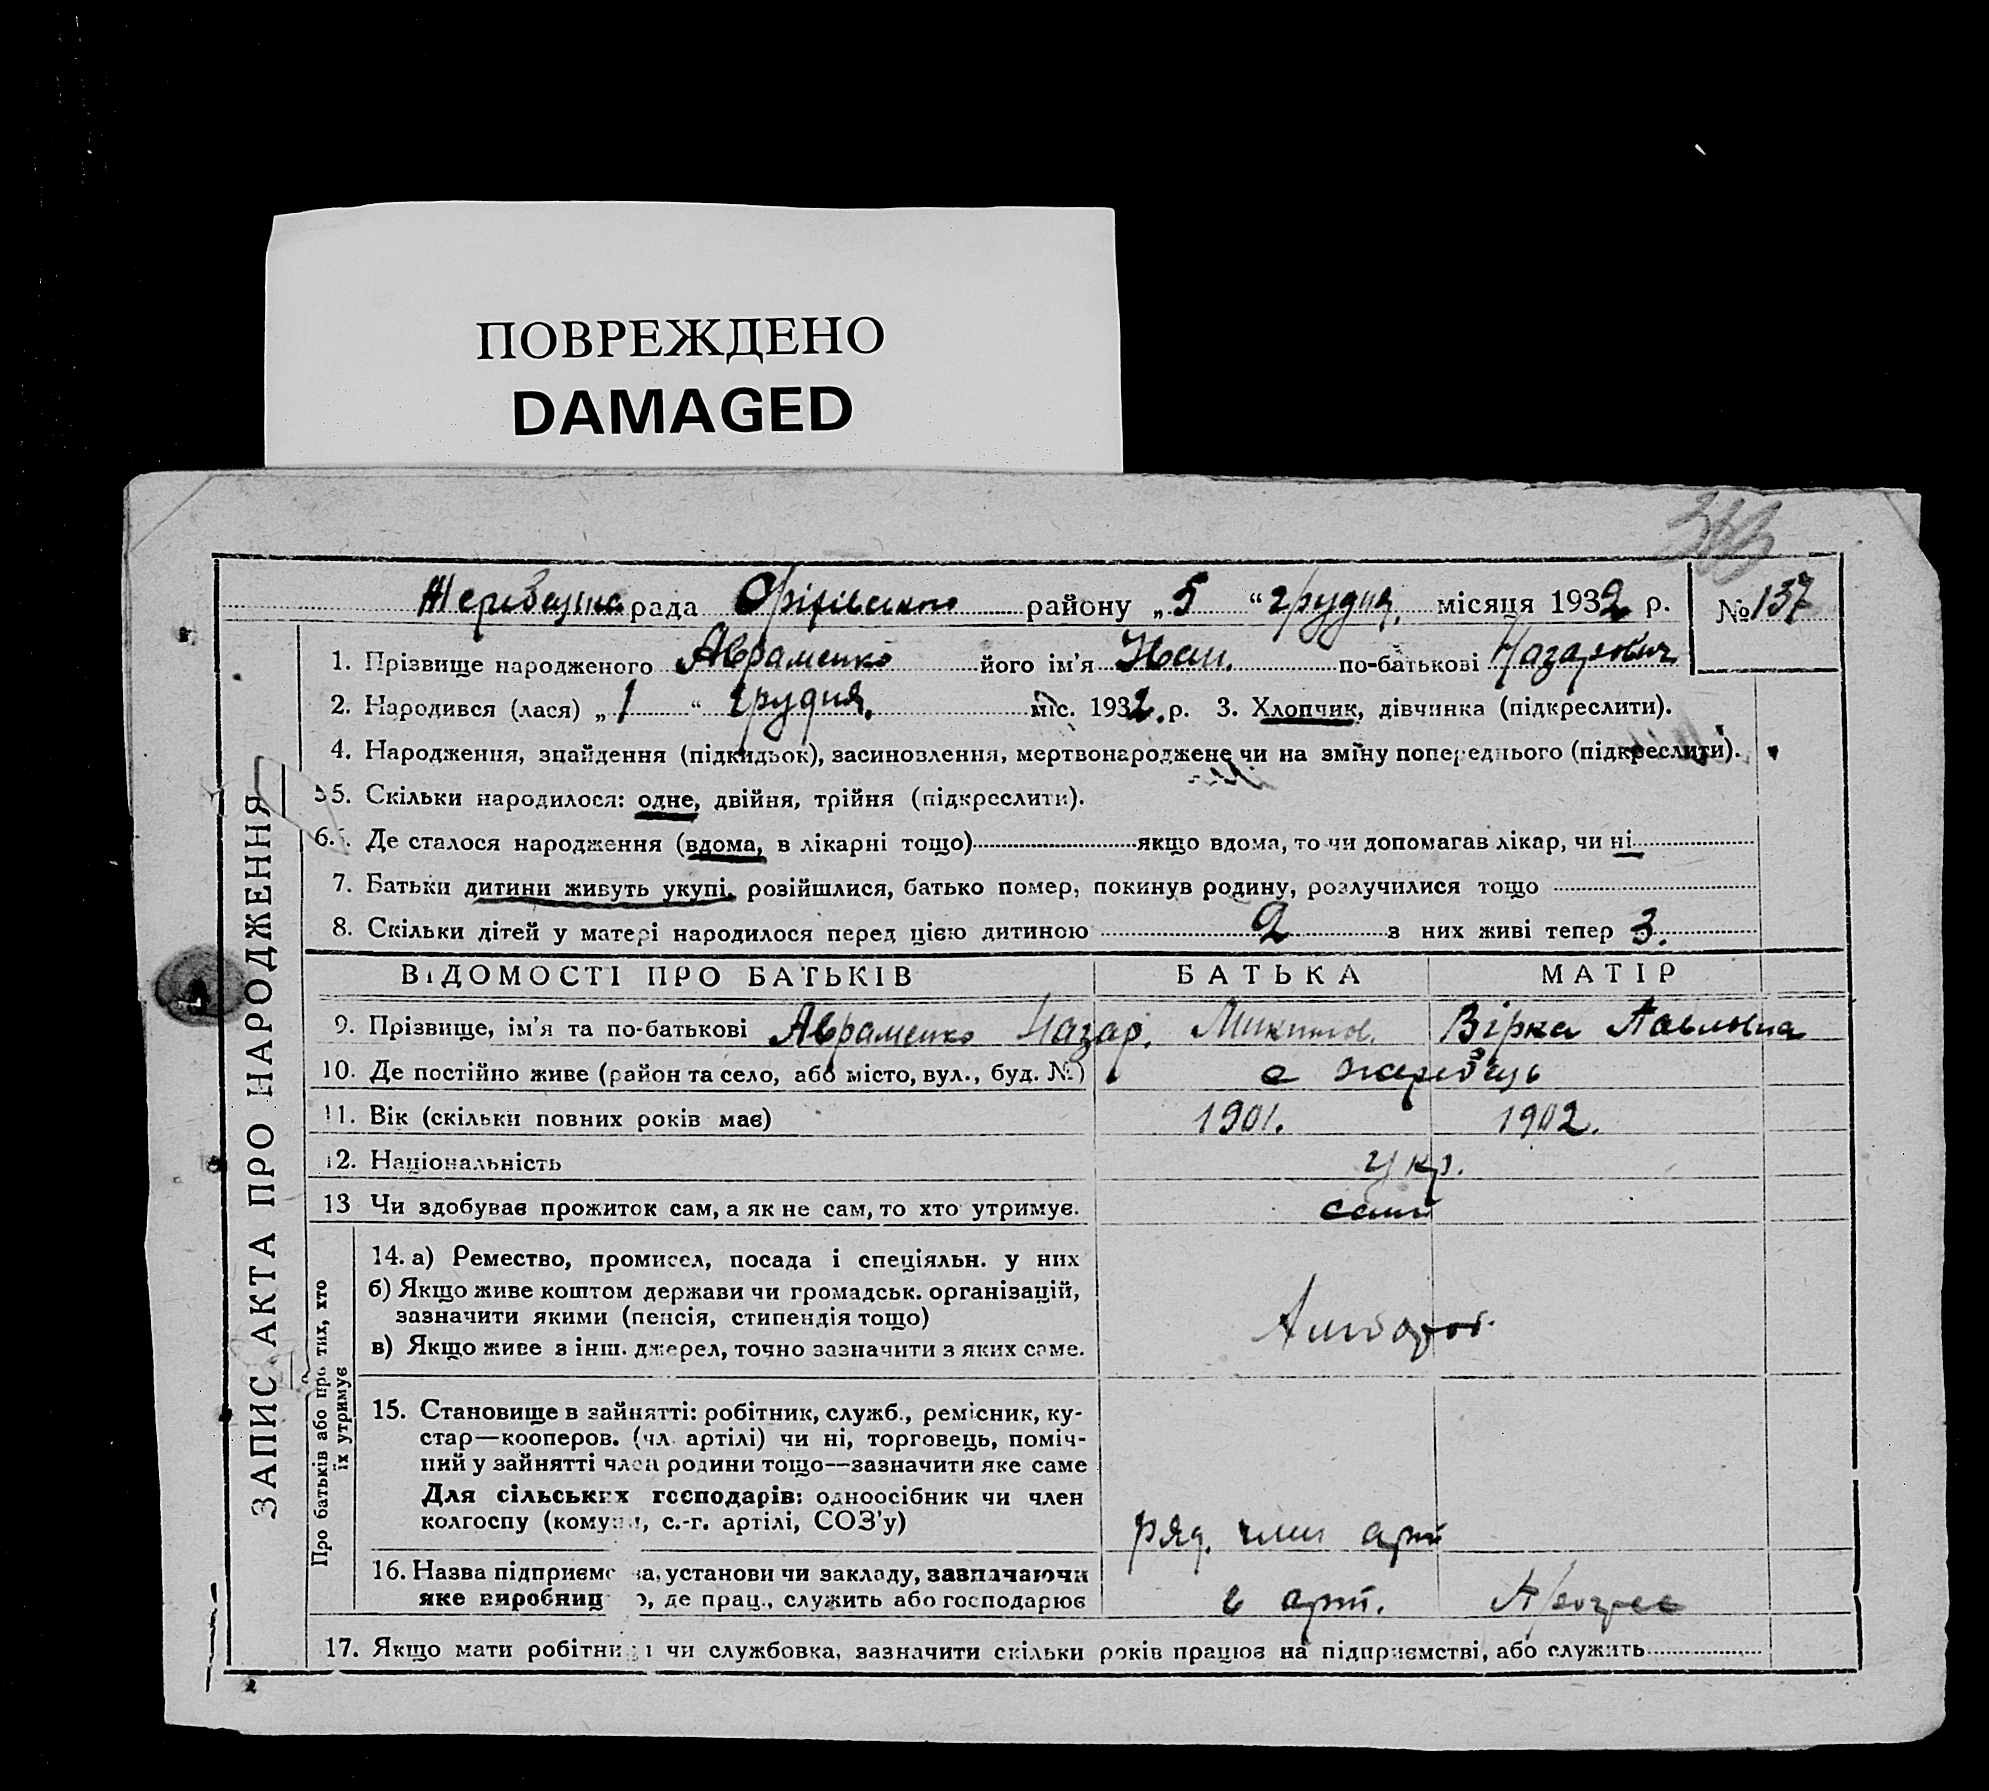 ПОВРЕЖДЕНО
DAMAGED
Жеребецька рада Оріхівського району „5 “ грудня, місяця 1932 р. № 137
1. Прізвище народженого Авраменко його ім’я Іван. по-батькові Назарович
2. Народився (лася) „ 1 “ грудня. міс. 1932. р. 3. Хлопчик, дівчинка (підкреслити).
4. Народження, знайдення (підкидьок), засиновлення, мертвонароджене чи на зміну попереднього (підкреслити).
5. Скільки народилося: одне, двійня, трійня (підкреслити).
6. Де сталося народження (вдома, в лікарні тощо) якщо вдома, то чи допомагав лікар, чи ні
7. Батьки дитини живуть укупі, розійшлися, батько помер, покинув родину, розлучилися тощо
8. Скільки дітей у матері народилося перед цією дитиною 2 з них живі тепер 3.
ВІДОМОСТІ ПРО БАТЬКІВ БАТЬКА МАТІР
9. Прізвище, ім’я та по-батькові Авраменко Назар. Микитов. Вірка Павловна
10. Де постійно живе (район та село, або місто, вул., буд. №) с Жеребець
11. Вік (скільки повних років має) 1901. 1902.
12. Національність Укр.
13 Чи здобуває прожиток сам, а як не сам, то хто утримує. сами
14. а) Ремество, промисел, посада і спеціяльн. у них
б) Якщо живе коштом держави чи громадськ. організацій,
зазначити якими (пенсія, стипендія тощо)
в) Якщо живе з інш. джерел, точно зазначити з яких саме.
15. Становище в зайнятті: робітник, служб., ремісник, ку-
стар—кооперов. (чл. артілі) чи ні, торговець, поміч-
ний у зайнятті член родини тощо—зазначити яке саме
Для сільських господарів: одноосібник чи член
колгоспу (комуни, с.-г. артілі, СОЗ’у)
ряд. член арт
16. Назва підприємс ва, установи чи закладу, зазначаючи
яке виробниц о, де прац., служить або господарює в арт.
17. Якщо мати робітни і чи службовка, зазначити скільки років працює на підприємстві, або служить
ЗАПИС АКТА ПРО НАРОДЖЕННЯ
Про батьків або про тих, хто
їх утримує